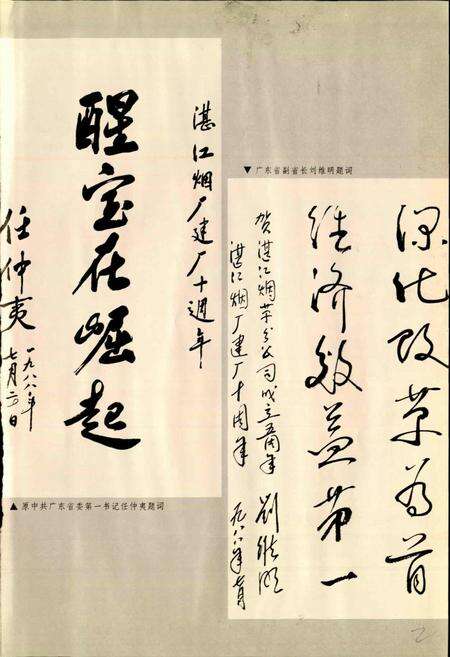 湛江烟厂建厂十週年
醒宝在崛起
任仲夷
一九八八年
▲ 原中共广东省委第一书记任仲夷题词
▼ 广东省副省长刘维明题词
深化改革为首
经济效益第一
贺湛江烟草分公司成立五周年
湛江烟厂建厂十周年
劉维明
一九八八年七月
2